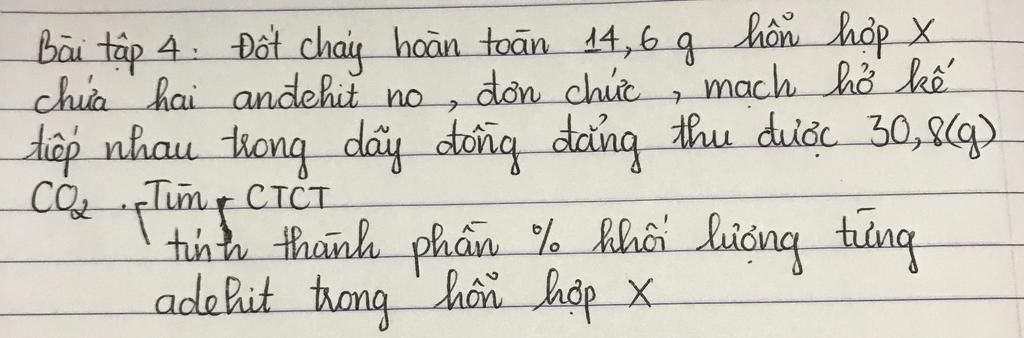 Bài tập 4: Đốt cháy hoàn toàn 14,6 g hỗn hợp X
chứa hai andehit no, đơn chức, mạch hở kế
tiếp nhau trong dãy đồng đẳng thu được 30,8(g)
CO₂. Tìm CTCT
tính thành phần % khối lượng từng
adehit trong hỗn hợp X